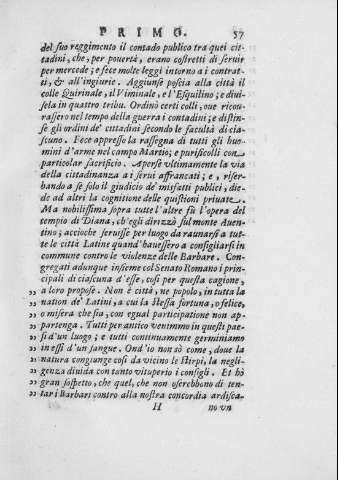 PRIMO. 57
del suo reggimento il contado publico tra quei cit-
tadini, che, per pouertà, erano costretti di seruir
per mercede; e fece molte leggi intorno a i contrat-
ti, & all'ingiurie. Aggiunse poscia alla città il
colle Quirinale, il Viminale, e l'Esquilino; e diui-
sela in quattro tribu. Ordinò certi colli, oue ricou-
rassero nel tempo della guerra i contadini; e distin-
se gli ordini de' cittadini secondo le facultà di cia-
scuno. Fece appresso la rassegna di tutti gli huo-
mini d'arme nel campo Martio; e purificolli con
particolar sacrificio. Aperse vltimamente la via
della cittadinanza a i serui affrancati; e, riser-
bando a se solo il giudicio de' misfatti publici, die-
de ad altri la cognitione delle quistioni priuate.
Ma nobilissima sopra tutte l'altre fù l'opera del
tempio di Diana, ch'egli dirizzò sul monte Auen-
tino; accioche seruisse per luogo da raunarsi a tut-
te le città Latine quand'hauessero a consigliarsi in
commune contro le violenze delle Barbare. Con-
gregati adunque insieme col Senato Romano i prin-
cipali di ciascuna d'esse, così per questa cagione
„ a loro propose. Non è città, ne popolo, in tutta la
„ nation de' Latini, a cui la stessa fortuna, o felice,
„ o misera che sia, con egual participatione non ap-
„ partenga. Tutti per antico venimmo in questi pae-
„ si d'un luogo; e tutti continuamente germiniamo
„ in essi d'un sangue. Ond'io non sò come, doue la
„ natura congiunge così da vicino le stirpi, la negli-
„ genza diuida con tanto vituperio i consigli. Et hò
„ gran sospetto, che quel, che non oserebbono di ten-
„ tar i Barbari contro alla nostra concordia ardisca-
H no vn